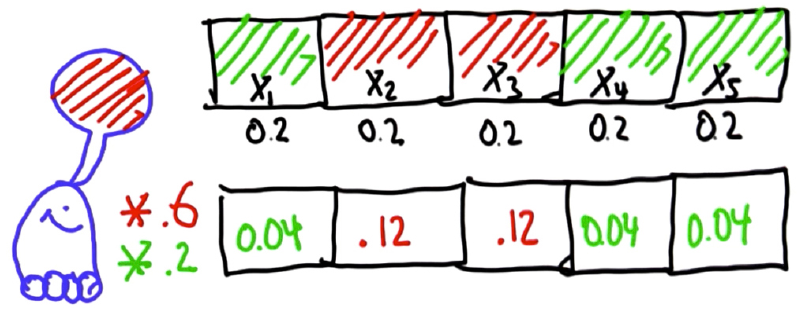 X₁ X₂ X₃ X₄ X₅
0.2 0.2 0.2 0.2 0.2
*.6
*.2
0.04 .12 .12 0.04 0.04